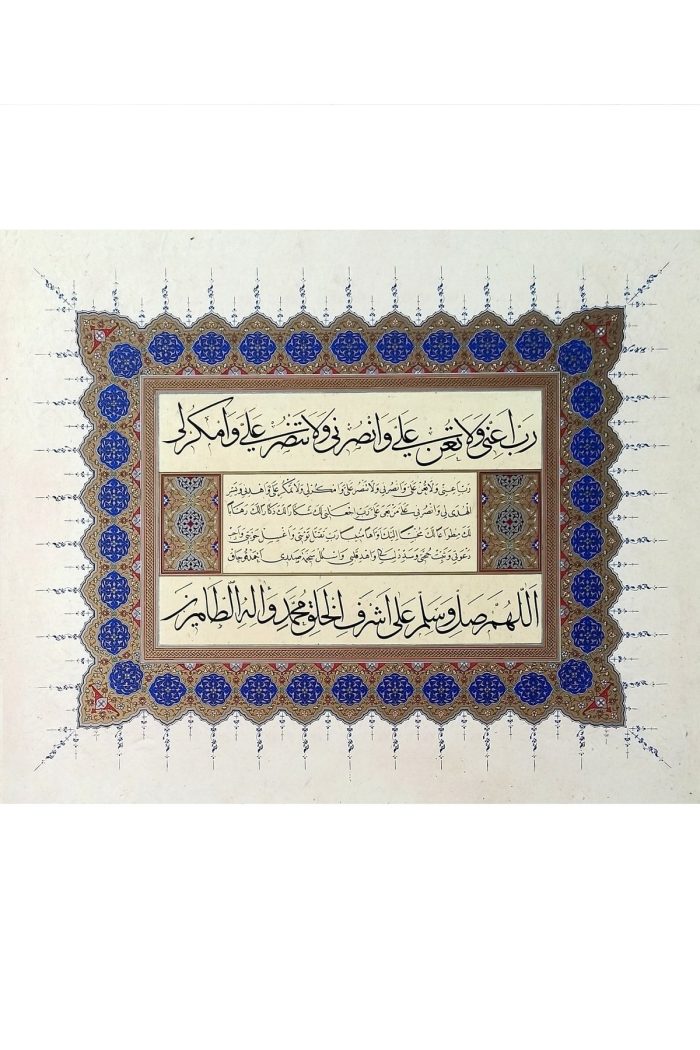 رب اعني ولا تعن علي وانصرني ولا تنصر علي وامكر لي
رب اعني ولا تعن علي وانصرني ولا تنصر علي وامكر لي ولا تمكر علي واهدني ويسر
الهدى لي وانصرني على من بغى علي رب اجعلني لك شكارا لك ذكارا لك رهابا
لك مطواعا لك مخبتا اليك اواها منيبا رب تقبل توبتي واغسل حوبتي واجب
دعوتي وثبت حجتي وسدد لساني واهد قلبي واسلل سخيمة صدري
اللهم صل وسلم على اشرف الخلق محمد واله الطاهرين